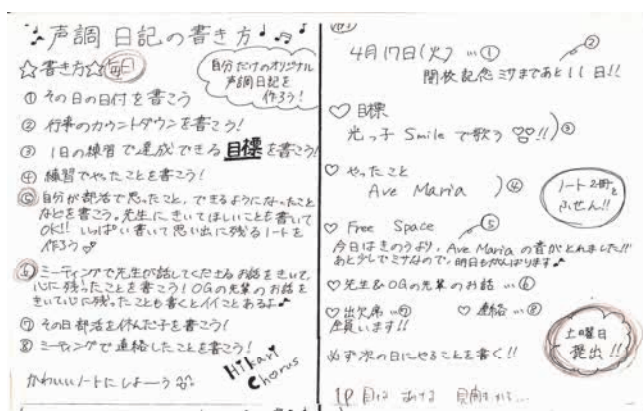 声調 日記の書き方
☆書き方☆ 毎日
自分だけのオリジナル
声調日記を
作ろう!
① その日の日付を書こう
② 行事のカウントダウンを書こう!
③ 1日の練習で達成できる目標を書こう!
④ 練習でやったことを書こう!
⑤ 自分が部活で思ったこと、できるようになったこと
などを書こう。先生にきいてほしいことも書いて
OK!! いっぱい書いて思い出に残るノートを
作ろう♡
⑥ ミーティングで先生が話してくださるお話をきいて、
心に残ったことを書こう! OGの先輩のお話を
きいて心に残ったことも書くとイイことあるよ♪
⑦ その日部活を休んだ子を書こう!
⑧ ミーティングで連絡したことを書こう!
かわいいノートにしよーう
Hikari
Chorus
4月17日(火) …①
②
開校記念ミサまであと11日!!
♡ 目標
光っ子 Smile で歌う !!) ③
♡ やったこと
Ave Maria ) ④
ノート2冊と
ふせん!!
♡ Free Space ⑤
今日はきのうより、Ave Mariaの音がとれました!!
あと少しでミサなので、明日もがんばります♪
♡ 先生&OGの先輩のお話 …⑥
♡ 出欠席 …⑦ ♡ 連絡 …⑧
全員います!!
土曜日
提出!!
必ず次の日にやることを書く!!
1P目は あける